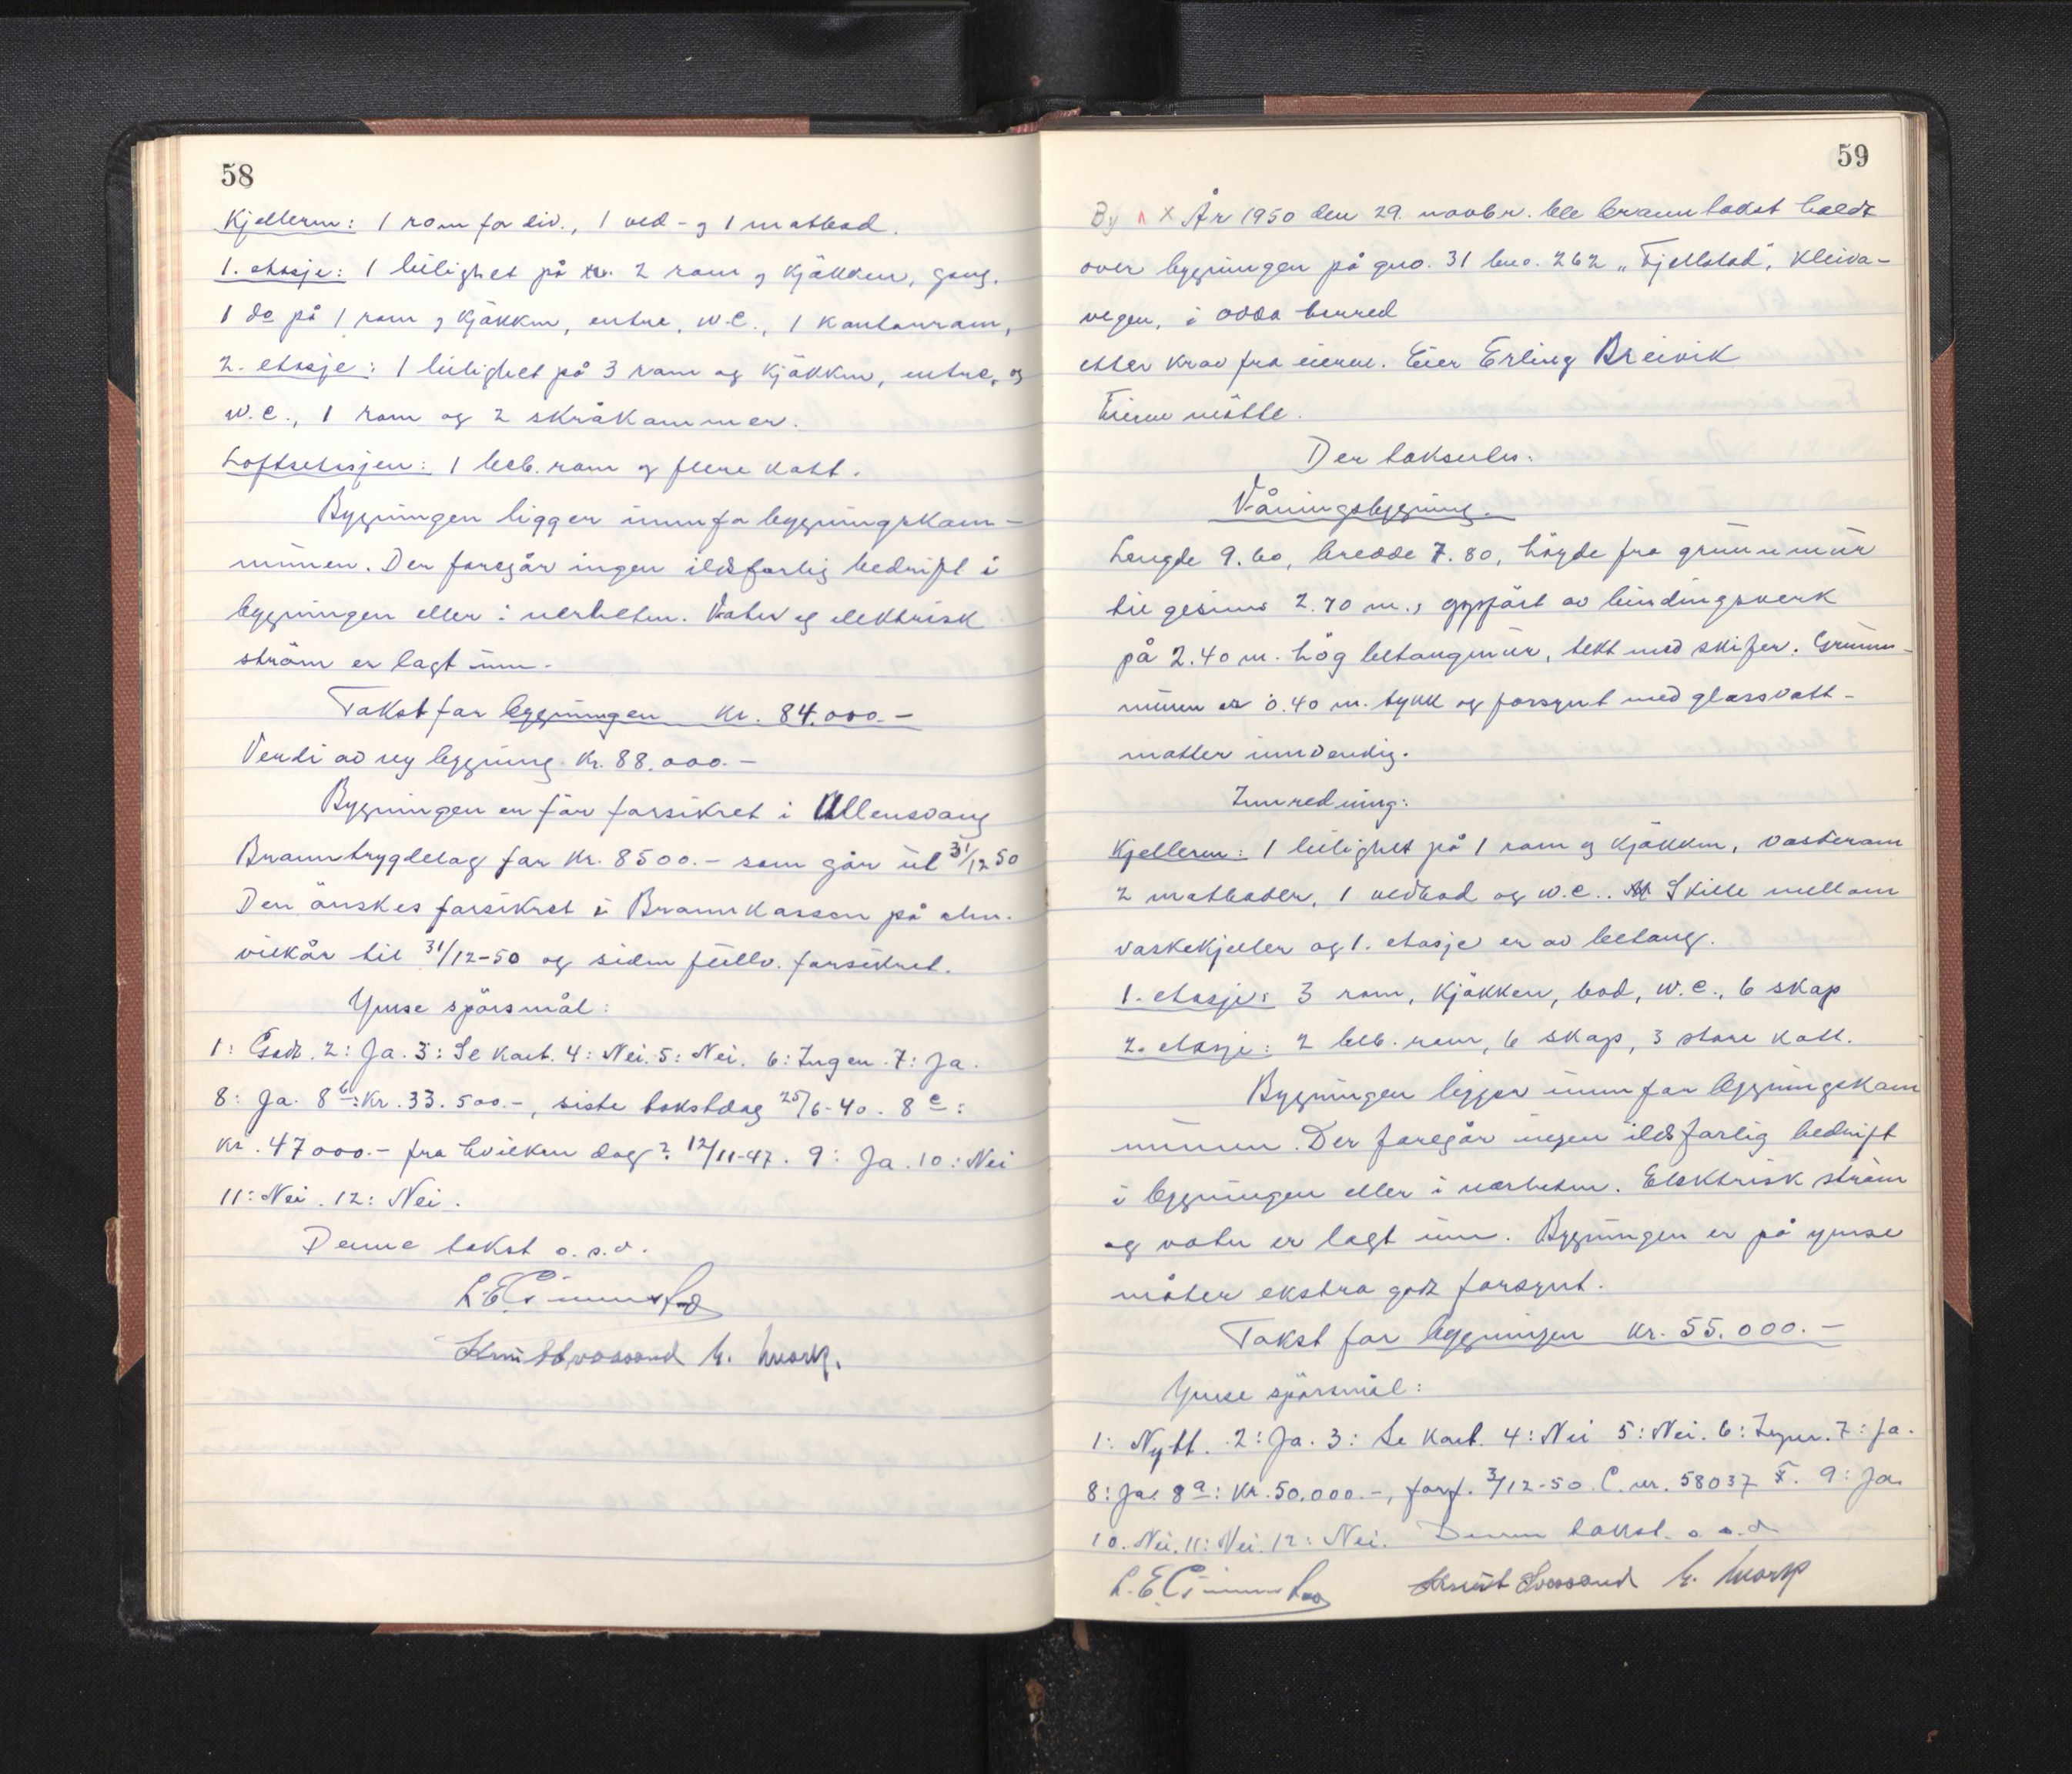 58
Kjelleren: 1 rom for div., 1 ved- og 1 matbod.
1. etasje: 1 leilighet på 2 rom og kjökken, gang.
1 do på 1 rom og kjökken, entre, w.c., 1 kontorrom,
2. etasje: 1 leilighet på 3 rom og kjökken, entre, og
w.c., 1 rom og 2 skråkammer.
Loftsetasjen: 1 beb. rom og flere kott.
Bygningen ligger innafor bygningskom-
munen. Der foregår ingen ildsfarlig bedrift i
bygningen eller i nærheten. Vatn og elektrisk
ström er lagt inn.
Takst for bygningen kr. 84.000.-
Verdi av ny bygning kr. 88.000.-
Bygningen er för forsikret i Ullensvang
Branntrygdelag for kr. 8500.- som går ut 31/12 50
Den önskes forsikret i Brannkassen på alm.
vilkår til 31/12-50 og siden fullv. forsikret.
Ymse spörsmål:
1: Godt. 2: Ja. 3: Se kart. 4: Nei. 5: Nei. 6: Ingen. 7: Ja.
8: Ja. 8b: Kr. 33.500.-, siste takstdag 25/6-40. 8c:
kr. 47000.- fra hvilken dag? 12/11-47. 9: Ja. 10: Nei
11: Nei. 12: Nei.
Denne takst o.s.v.
L. E.
Knut h. mork.
59
By x År 1950 den 29. novbr. ble branntakst holdt
over bygningen på gno. 31 bno. 262 „Fjellstad", Kleiva-
vegen, i Odda herred
etter krav fra eieren. Eier Erling Breivik
Eieren mötte.
Der takseres:
Våningsbygning.
Lengde 9.60, bredde 7.80, höyde fra grunnmur
til gesims 2.70 m., oppfört av bindingsverk
på 2.40 m. hög betongmur, tekt med skifer. Grunn-
muren er 0.40 m. tykk og forsynt med glassvatt-
matter innvendig.
Innredning:
Kjelleren: 1 leilighet på 1 rom og kjökken, vaskerom
2 matboder, 1 vedbod og w.c.. Skille mellom
vaskekjeller og 1. etasje er av betong.
1. etasje: 3 rom, kjökken, bod, w.c., 6 skap
2. etasje: 2 beb. rom, 6 skap, 3 store kott.
Bygningen ligger innafor bygningskom
munen. Der foregår ingen ildsfarlig bedrift
i bygningen eller i nærheten. Elektrisk ström
og vatn er lagt inn. Bygningen er på ymse
måter ekstra godt forsynt.
Takst for bygningen kr. 55.000.-
Ymse spörsmål:
1: Nytt. 2: Ja. 3: Se kart. 4: Nei 5: Nei. 6: Ingen. 7: Ja.
8: Ja. 8a: Kr. 50.000.-, forf. 3/12-50. C. nr. 58037 9: Ja.
10. Nei. 11: Nei. 12: Nei. Denne takst o.s.v
L. E. Knut h. mork